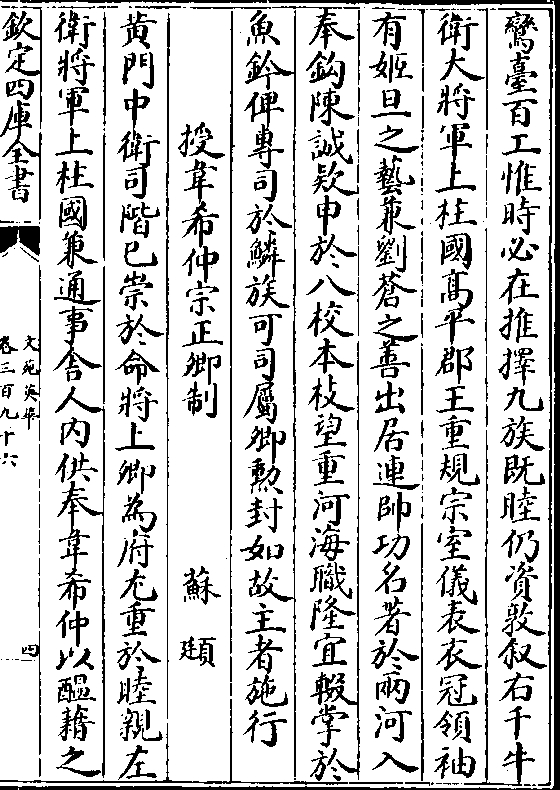 鸞臺百工惟時必在推擇九族既睦仍資敦叙右千牛
衛大將軍上柱國髙平郡王重規宗室儀表衣冠領袖
有姬旦之藝兼劉蒼之善出居連帥功名著於兩河入
奉鈎陳誠欵申於八校本枝望重河海職隆宜輟掌於
魚鈐俾專司於鱗族可司屬卿勲封如故主者施行
授韋希仲宗正卿制 蘇頲
黄門中衛司階已崇於命將上卿為府尤重於睦親左
衛將軍上柱國兼通事舍人内供奉韋希仲以醖藉之
欽定四庫全書
文苑英華
卷三百九十六
四